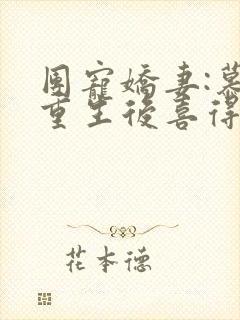 團寵嬌妻:慕
重生後喜得
花本德